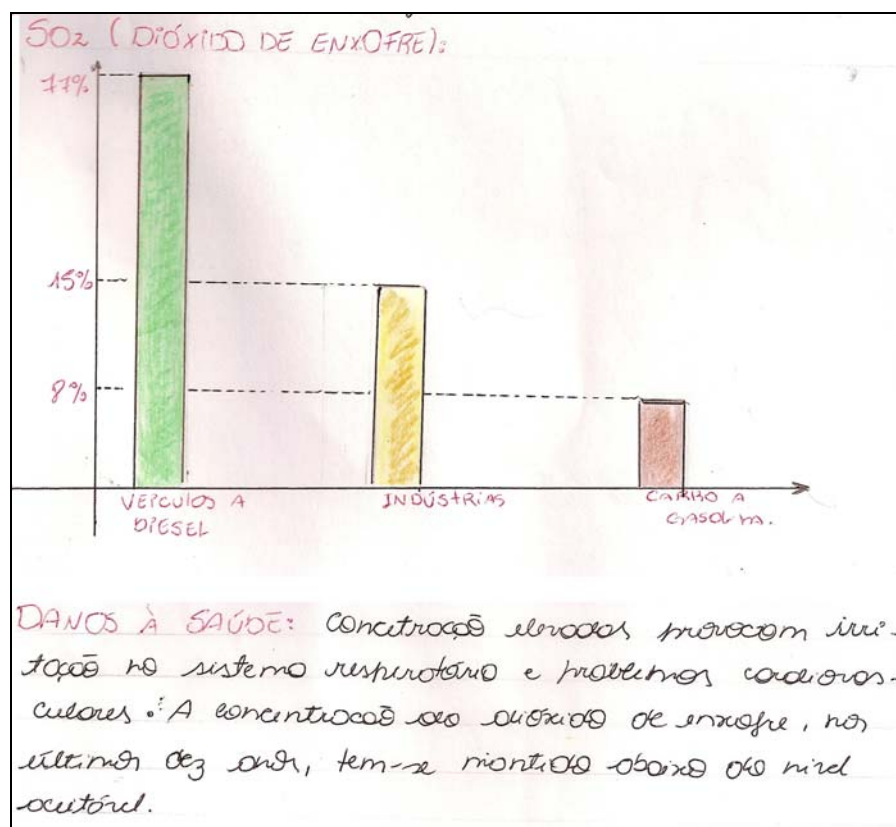 SO2 (DIÓXIDO DE ENXOFRE):
77%
15%
8%
VEÍCULOS A
DIESEL
INDÚSTRIAS
CARRO A
GASOLINA.
DANOS À SAÚDE: concetração elevadas provocam irri-
tação no sistema respirotário e problemas cardiovas-
culares. A concentracão do dióxido de enxofre, nos
últimos dez anos, tem-se mantido abaixo do nivel
aceitável.